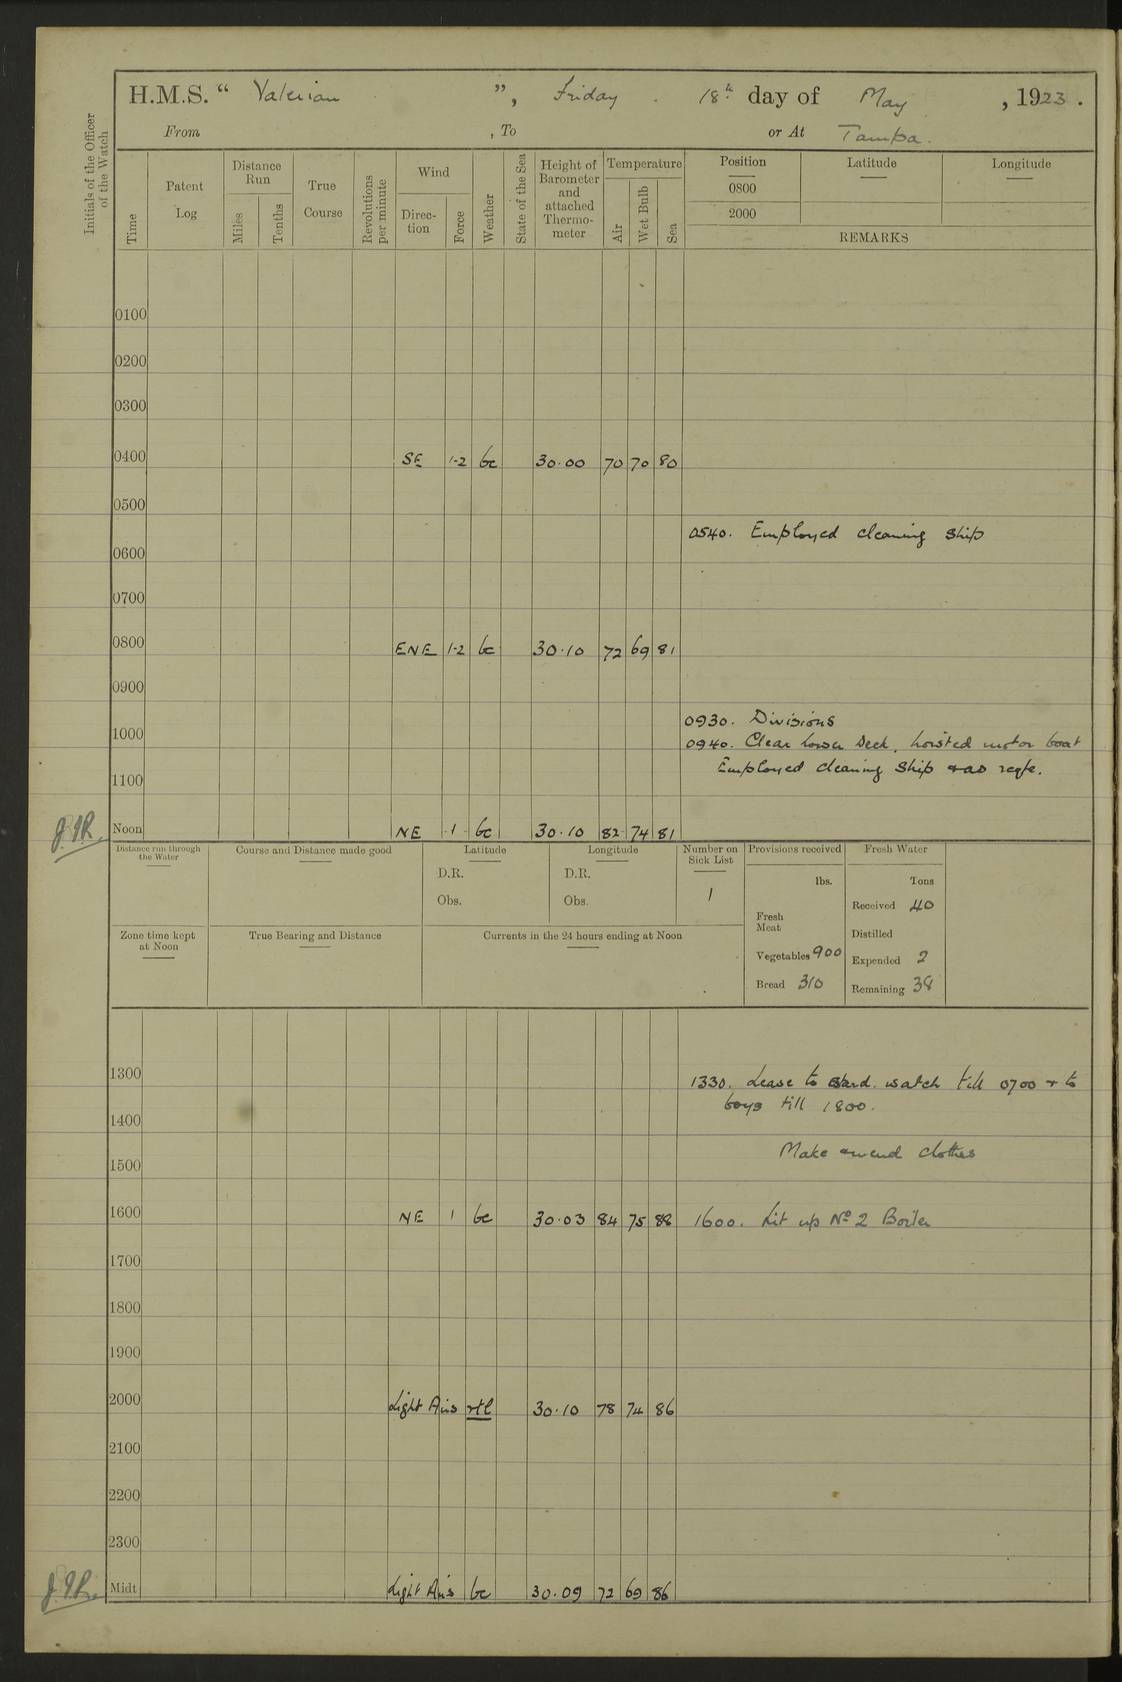 H.M.S. “ Valerian ”, Friday . 18th day of May , 1923 .
From , To or At Tampa.
Initials of the Officer
of the Watch
Time
Patent
Log
Distance
Run
Miles
Tenths
True
Course
Revolutions
per minute
Wind
Direc-
tion
Force
Weather
State of the Sea
Height of
Barometer
and
attached
Thermo-
meter
Temperature
Air
Wet Bulb
Sea
Position Latitude Longitude
0800
2000
REMARKS
0100
0200
0300
0400 SE 1-2 bc 30.00 70 70 80
0500
0540. Employed cleaning ship
0600
0700
0800 ENE 1-2 bc 30.10 72 69 81
0900
0930. Divisions
1000 0940. Clear lower deck, hoisted motor boat
Employed cleaning ship & as reqte.
1100
J.J.R. Noon NE 1 bc 30.10 82 74 81
Distance run through
the Water
Course and Distance made good
Latitude
D.R.
Obs.
Longitude
D.R.
Obs.
Number on
Sick List
1
Provisions received
lbs.
Fresh
Meat
Vegetables 900
Bread 310
Fresh Water
Tons
Received 40
Distilled
Expended 2
Remaining 38
Zone time kept
at Noon
True Bearing and Distance
Currents in the 24 hours ending at Noon
1300 1330. Leave to stard. watch till 0700 & to
boys till 1800.
1400
Make & mend clothes
1500
1600 NE 1 bc 30.03 84 75 88 1600. Lit up No 2 Boiler
1700
1800
1900
2000 Light Airs rtl 30.10 78 74 86
2100
2200
2300
J.J.R. Midt Light Airs bc 30.09 72 69 86